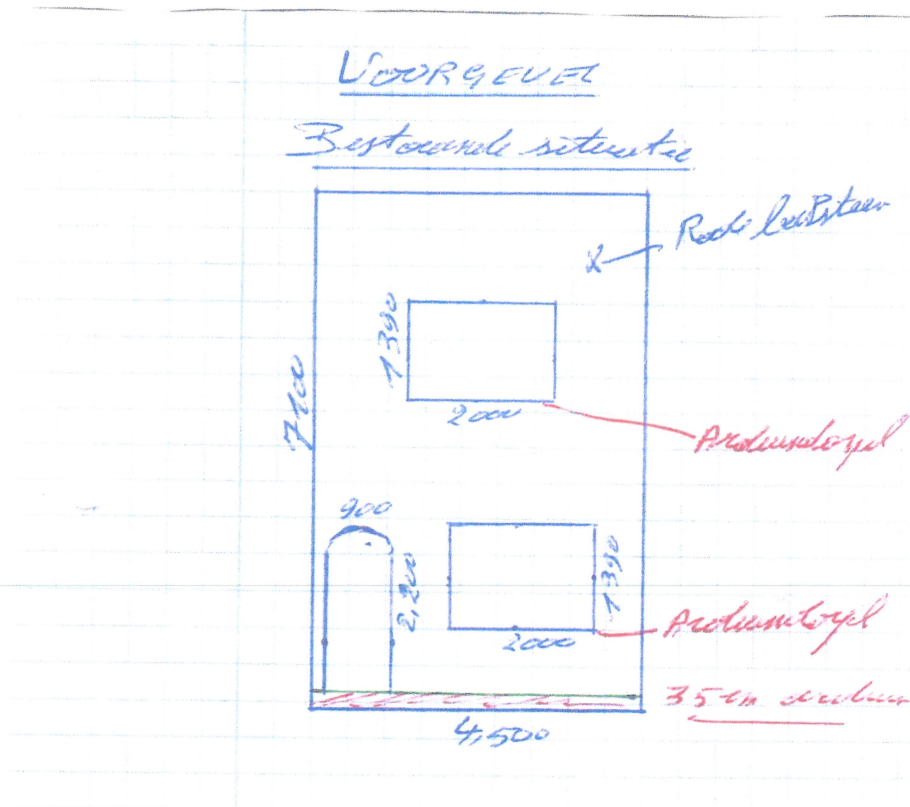 VOORGEVEL
Bestaande situatie
Rode
1390
2000
7100
Arduindorpel
900
2,200
1390
2000
Arduindorpel
35 cm arduin
4,500